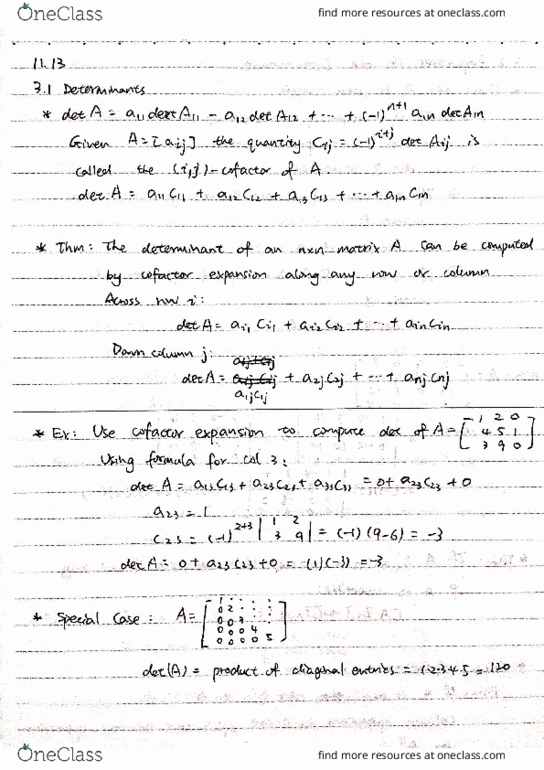 OneClass
find more resources at oneclass.com
11.13
3.1 Determinants
* det A = a11 det A11 - a12 det A12 + ... + (-1)^n+1 a1n det A1n
Given A = [aij] the quantity Cij = (-1)^i+j det Aij is
called the (i,j)-cofactor of A
det A = a11 C11 + a12 C12 + a13 C13 + ... + a1n C1n
* Thm: The determinant of an nxn matrix A can be computed
by cofactor expansion along any row or column
Across row i:
det A = ai1 Ci1 + ai2 Ci2 + ... + ain Cin
Down column j:
det A = a1j C1j + a2j C2j + ... + anj Cnj
* Ex: Use cofactor expansion to compute det of A = [1 2 0
4 5 1
3 9 0]
Using formula for col 3:
det A = a13 C13 + a23 C23 + a33 C33 = 0 + a23 C23 + 0
a23 = 1
C23 = (-1)^2+3 |1 2
3 9| = (-1)(9-6) = -3
det A = 0 + a23 C23 + 0 = (1)(-3) = -3
* Special Case: A = [1 . . . .
0 2 . . .
0 0 3 . .
0 0 0 4 .
0 0 0 0 5]
det(A) = product of diagonal entries = 1·2·3·4·5 = 120
OneClass
find more resources at oneclass.com